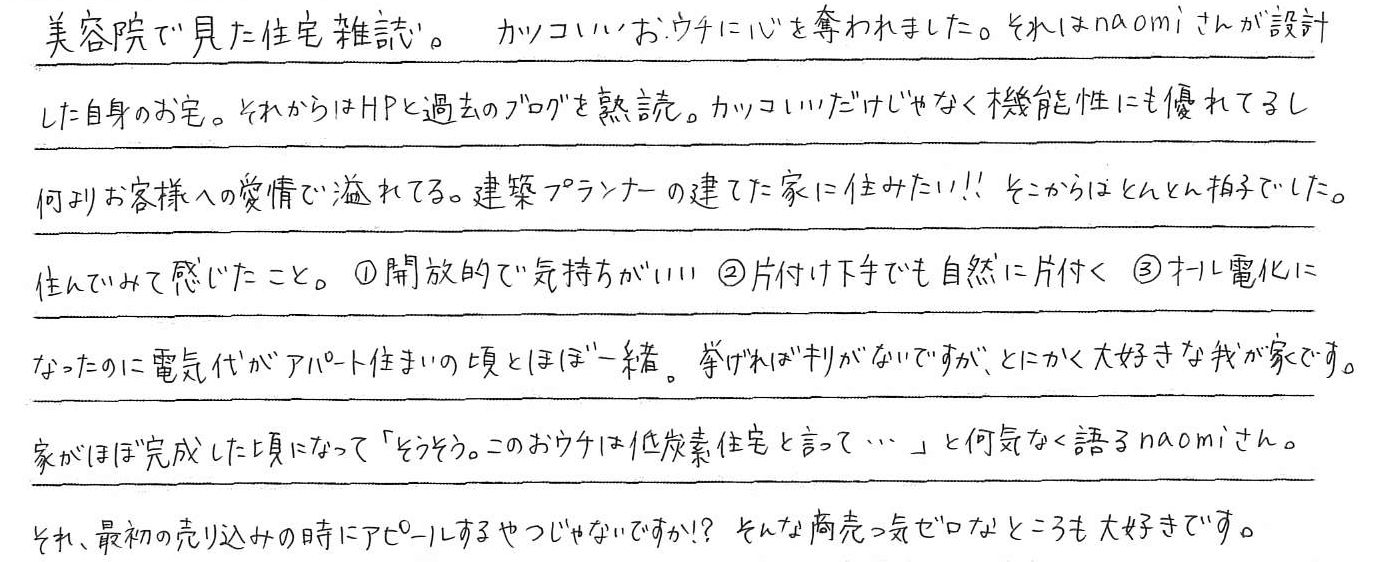 美容院で見た住宅雑誌。 カッコいいおウチに心を奪われました。それはnaomiさんが設計
した自身のお宅。それからはHPと過去のブログを熟読。カッコいいだけじゃなく機能性にも優れてるし
何よりお客様への愛情で溢れてる。建築プランナーの建てた家に住みたい!! そこからはとんとん拍子でした。
住んでみて感じたこと。①開放的で気持ちがいい ②片付け下手でも自然に片付く ③オール電化に
なったのに電気代がアパート住まいの頃とほぼ一緒。 挙げればキリがないですが、とにかく大好きな我が家です。
家がほぼ完成した頃になって「そうそう。このおウチは低炭素住宅と言って…」と何気なく語るnaomiさん。
それ、最初の売り込みの時にアピールするやつじゃないですか!? そんな商売っ気ゼロなところも大好きです。